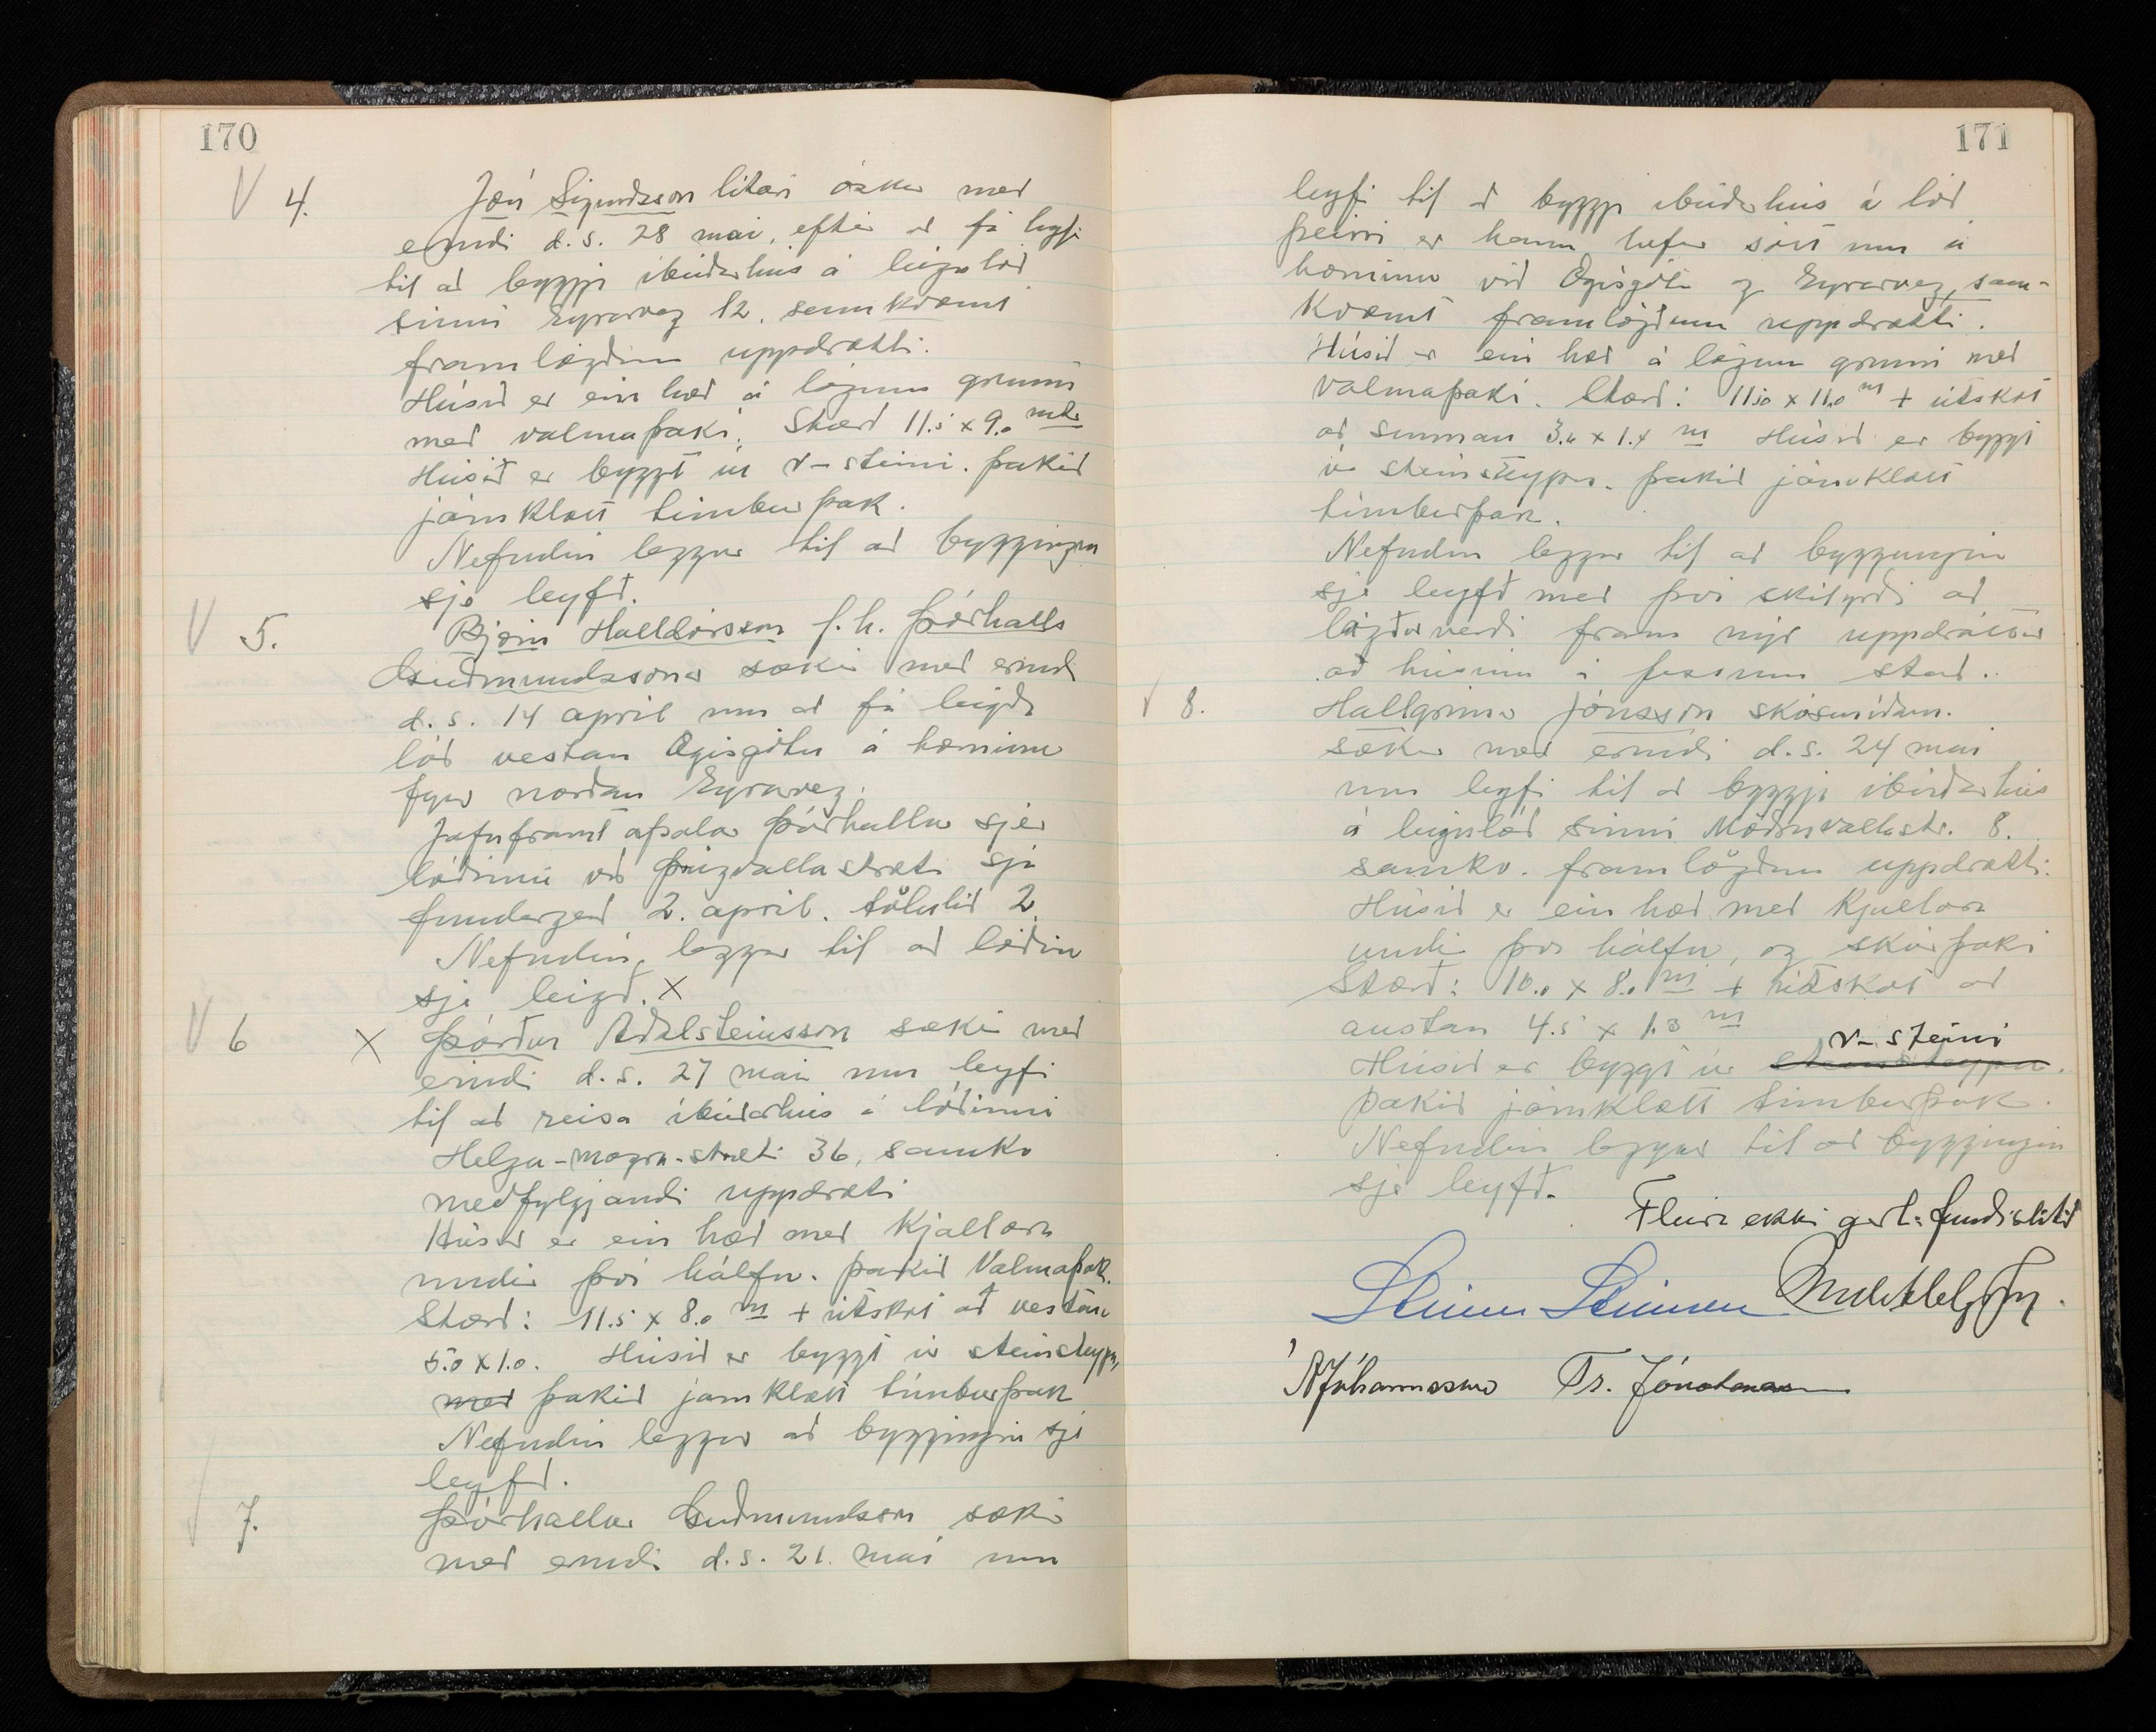 170
V 4. Jón Sigurdsson litari óskar med
erindi d.s. 28 mai, eftir ad fá leyfi
til ad byggja íbúdarhús á leigulód
sinni Eyrarveg 12, samkvæmt
framlögdum uppdrætti.
Húsid er ein hæd á lágum grunni
med valmaþaki. Stærd 11.5 x 9.0 mtr
Húsid er byggt úr r-steini. þakid
járnklætt timburþak.
Nefndin leggur til ad byggingin
sje leyfd.
V 5. Björn Halldórsson f.h. Þórhalls
Gudmundssonar sækir med erindi
d.s. 14 april um ad fá leigda
lód vestan Ægisgötu á horninu
fyrir nordan Eyrarveg.
Jafnframt afsalar Þórhallur sjer
lódinni vid Þingvallastræti sjá
fundargerd 2. april. tölulid 2.
Nefndin leggur til ad lódin
sje leigd. x
V 6 x Þórdur Adalsteinsson sækir med
erindi d.s. 27 mai um leyfi
til ad reisa íbúdarhús á lódinni
Helga-magra-stræti 36, samkv
medfylgjandi uppdrætti
Húsid er ein hæd med Kjallara
undir því hálfu. þakid Valmaþak.
Stærd: 11.5 x 8.0 m + útskot ad vestan
5.0 x 1.0. Húsid er byggt úr steinsteypu,
med þakid járnklætt timburþak
Nefndin leggur ad byggingin sje
leyfd.
V 7. Þórhallur Gudmundsson sækir
med erindi d.s. 21. mai um
171
leyfi til ad byggja íbúdarhús á lód
þeirri er hann hefur sótt um á
horninu vid Ægisgötu og Eyrarveg, sam-
kvæmt framlögdum uppdrætti.
Húsid er ein hæd á lágum grunni med
valmaþaki. Stærd: 11.50 x 11.0 m + útskot
ad sunnan 3.6 x 1.4 m Húsid er byggt
úr steinsteypu. þakid járnklætt
timburþak.
Nefndin leggur til ad byggingin
sje leyfd med því skilyrdi ad
lagdur verdi fram nýr uppdráttur
ad húsinu á þessum stad.
V 8. Hallgrímur Jónsson skósmídam.
sækir med erindi d.s. 24 mai
um leyfi til ad byggja íbúdarhús
á leigulód sinni Mödruvallastr. 8.
samkv. framlögdum uppdrætti.
Húsid er ein hæd med Kjallara
undir því hálfu, og skúrþaki
Stærd: 10.0 x 8.0 m + útskot ad
austan 4.5 x 1.3 m
r-steini
Húsid er byggt úr steinsteypu.
þakid járnklætt timburþak.
Nefndin leggur til ad byggingin
sje leyfd.
Fleira ekki gert. fundi slitid
Steinn Steinsen
AJóhannsson Tr. Jónatansson